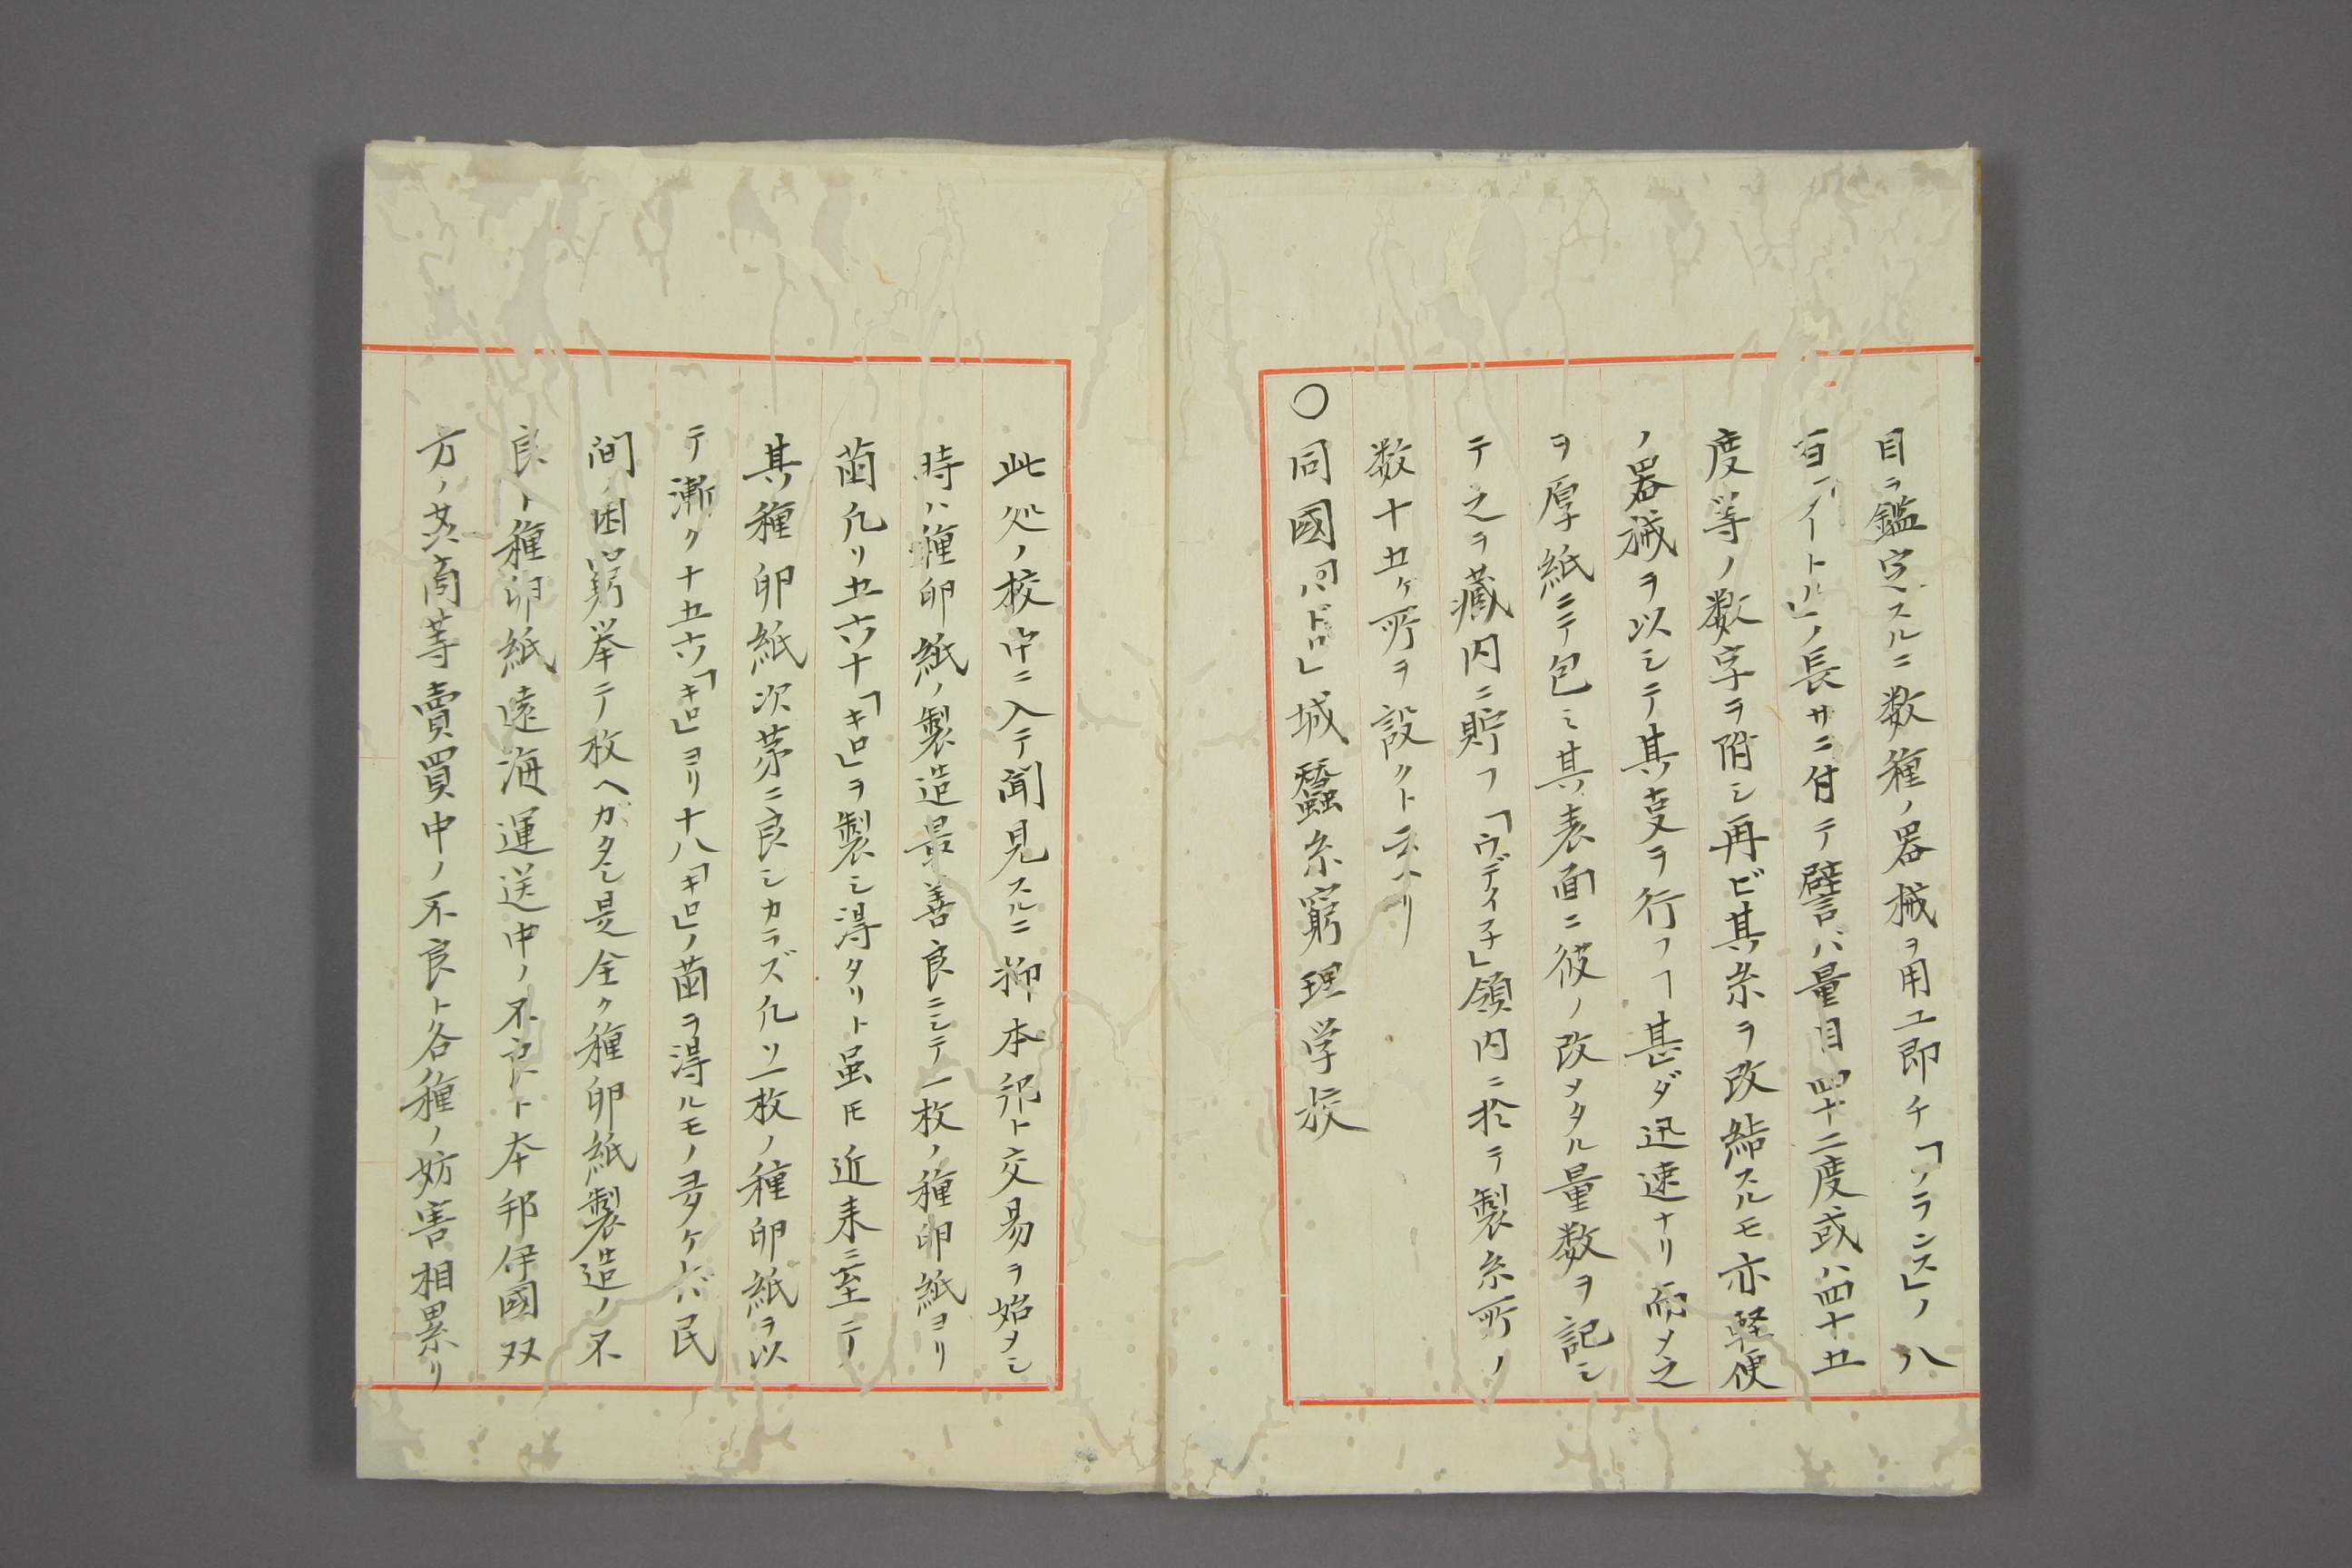 目ヲ鑑定スルニ数種ノ器械ヲ用ユ即チ「フランス」ノ八
百「メイトル」ノ長サニ付テ譬ハ量目四十二度或ハ四十五
度等ノ数字ヲ附シ再ビ其糸ヲ改結スルモ亦軽便
ノ器械ヲ以シテ其変ヲ行フヿ甚ダ迅速ナリ而メ之
ヲ厚紙ニテ包ミ其表面ニ彼ノ改メタル量数ヲ記シ
テ之ヲ蔵内ニ貯フ「ウデイ子」領内ニ於テ製糸所ノ
数十五ケ所ヲ設クト云ヘリ
○同國「パドロ」城蠶糸窮理学校
此処ノ校中ニ入テ聞見スルニ抑本邦ト交易ヲ始メシ
時ハ種卵紙ノ製造最善良ニシテ一枚ノ種卵紙ヨリ
繭凡ソ五六十「キロ」ヲ製シ得タリト虽𪜈近来ニ至テ
其種卵紙次第ニ良シカラズ凡ソ一枚ノ種卵紙ヲ以
テ漸ク十五六「キロ」ヨリ十八「キロ」ノ繭ヲ得ルモノ多ケレバ民
間ノ困窮挙テ枚ヘガタシ是全ク種卵紙製造ノ不
良ト種卵紙遠海運送中ノ不良ト本邦伊國双
方ノ其商等賣買中ノ不良ト各種ノ妨害相累リ